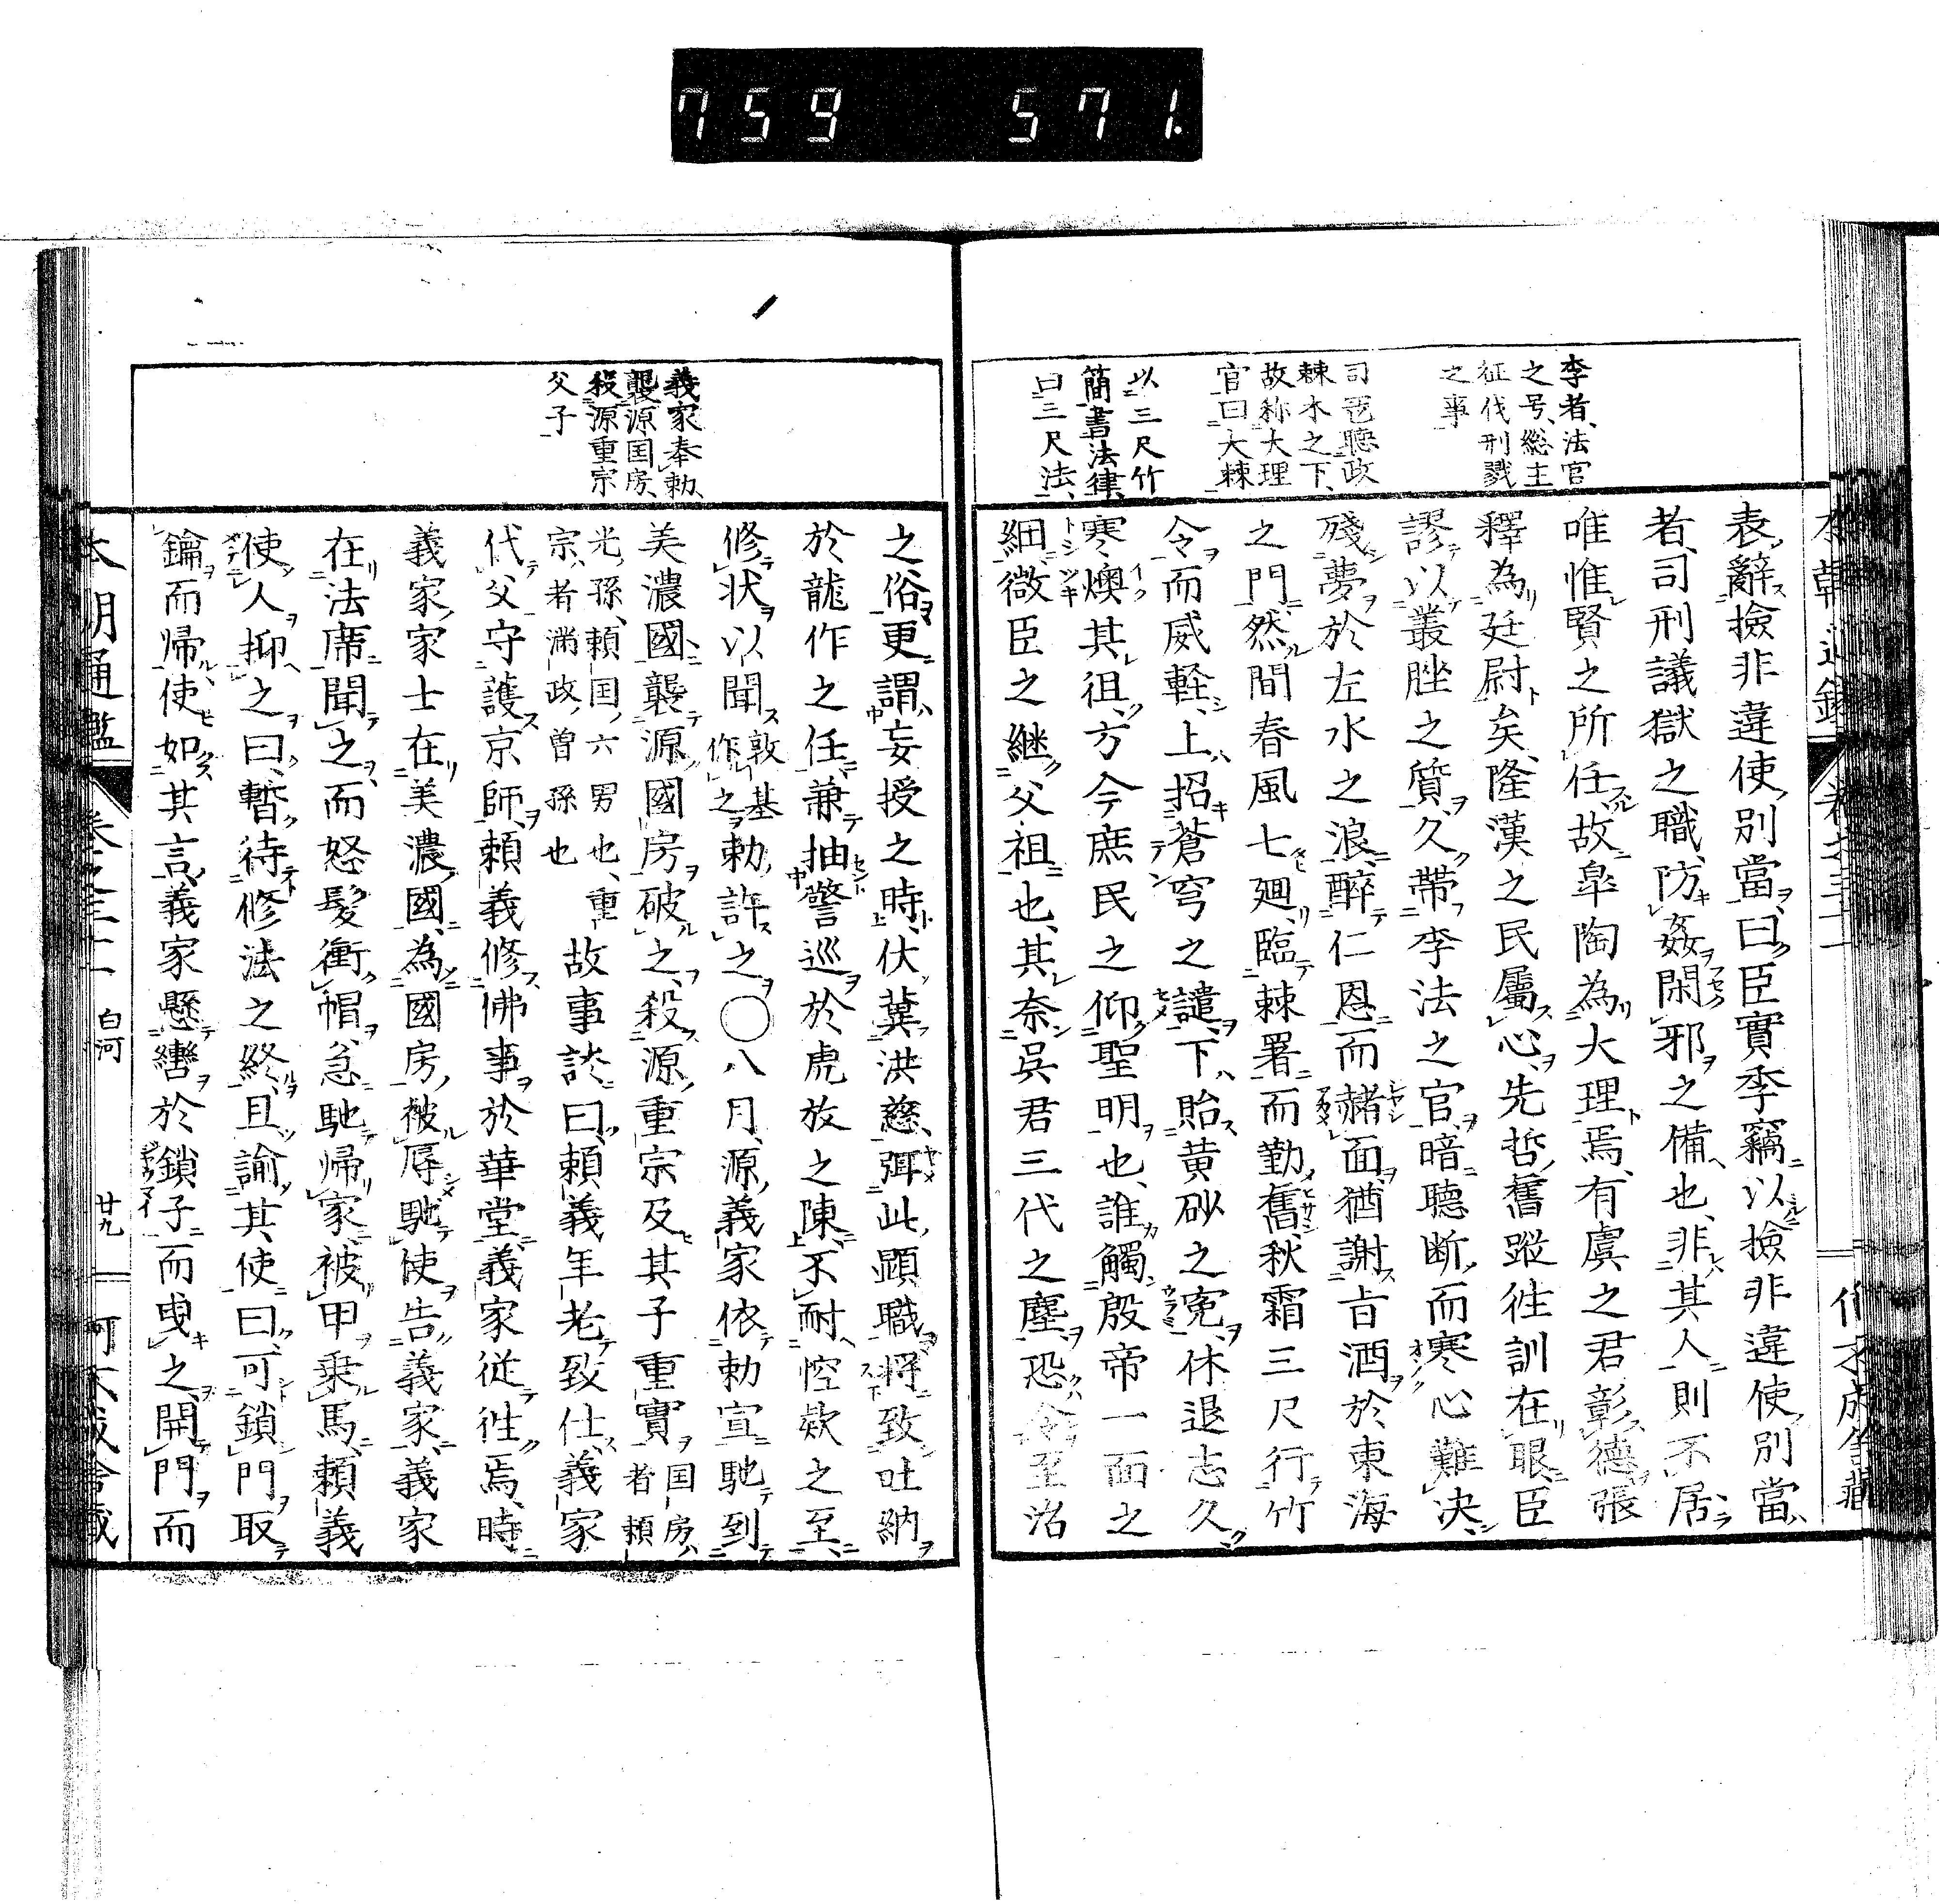 759 571.
李者、法官
之号、総主
征伐刑戮
之事
司寇聴政
棘木之下、
故称大理
官曰大棘
以三尺竹
簡書法律、
曰三尺法、
表辭撿非違使別當曰、臣實季竊以撿非違使別當
者、司刑議獄之職、防姦閑邪之備也、非其人則不居、
唯惟賢之所任、故皐陶為大理焉、有虞之君彰德、張
釋為廷尉矣、隆漢之民屬心、先哲舊蹤往訓在眼、臣
謬以叢脞之質、久帶李法之官、暗聴断而寒心難决、
殘夢於左水之浪、醉仁恩而赭面、猶謝旨酒於東海
之門、然間春風七廻、臨棘署而勤舊、秋霜三尺行竹
令而威軽、上招蒼穹之譴、下貽黄砂之寃、休退志久、
寒燠其徂、方今庶民之仰聖明也、誰觸殷帝一面之
細、微臣之継父祖也、其奈呉君三代之塵、恐令至治
義家奉勅、
襲源国房、
殺源重宗
父子
之俗更謂妄授之時、伏冀洪慈、弭此顕職、将致吐納
於龍作之任、兼抽警巡於虎放之陳、不耐悾欵之至、
修状以聞敦基作之勅許之○八月、源義家依勅宣馳到
美濃國、襲源國房破之、殺源重宗及其子重實国房者頼
光孫、頼国六男也、重宗者満政曽孫也故事談曰、頼義年老致仕、義家
代父守護京師、頼義修佛事於華堂、義家従往焉、時
義家家士在美濃國、為國房被辱、馳使告義家、義家
在法席聞之、而怒髮衝帽、怱馳帰家、被甲乗馬、頼義
使人抑之曰、暫待修法之終、且諭其使曰、可鎖門取
鑰而帰、使如其言、義家懸轡於鎖子而曳之、開門而
本朝通鑑 卷之三十二 白河 廿九